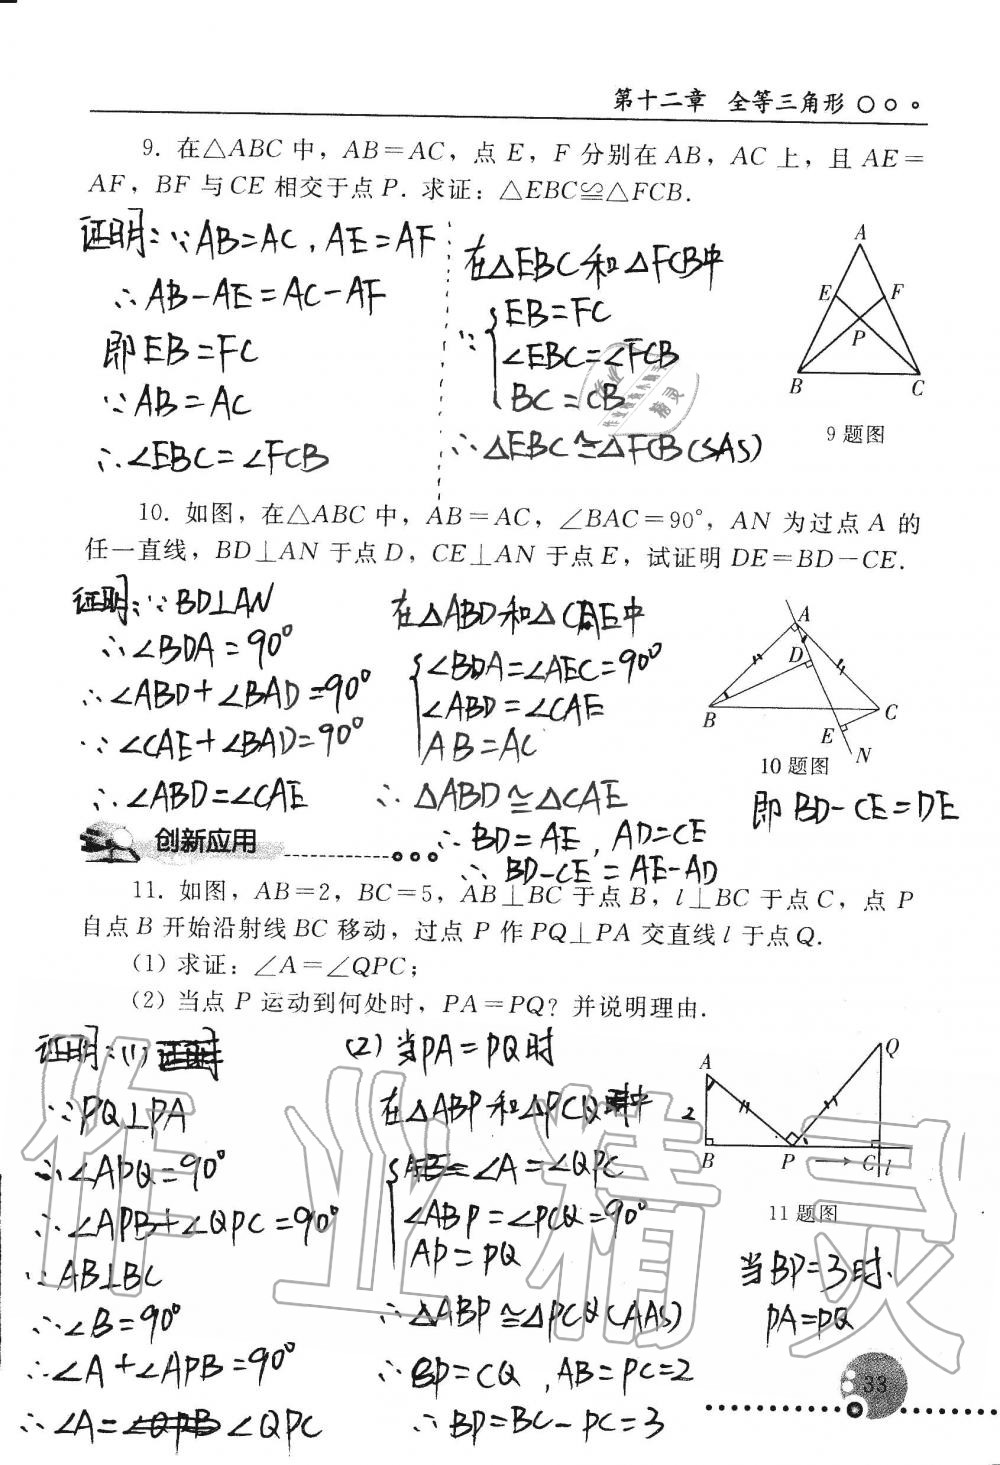 第十二章 全等三角形
9. 在△ABC 中，AB＝AC，点 E，F 分别在 AB，AC 上，且 AE＝
AF，BF 与 CE 相交于点 P. 求证：△EBC≌△FCB.
证明：∵AB=AC，AE=AF
∴AB-AE=AC-AF
即EB=FC
∵AB=AC
∴∠EBC=∠FCB
在△EBC和△FCB中
EB=FC
∵ ∠EBC=∠FCB
BC=CB
∴△EBC≌△FCB(SAS)
A
E F
P
B C
9 题图
10. 如图，在△ABC 中，AB＝AC，∠BAC＝90°，AN 为过点 A 的
任一直线，BD⊥AN 于点 D，CE⊥AN 于点 E，试证明 DE＝BD－CE.
证明：∵BD⊥AN
∴∠BDA=90°
∴∠ABD+∠BAD=90°
∵∠CAE+∠BAD=90°
∴∠ABD=∠CAE
在△ABD和△CAE中
∠BDA=∠AEC=90°
∠ABD=∠CAE
AB=AC
∴△ABD≌△CAE
∴BD=AE，AD=CE
∴BD-CE=AE-AD
即BD-CE=DE
A
D
B C
E N
10 题图
创新应用
11. 如图，AB＝2，BC＝5，AB⊥BC 于点 B，l⊥BC 于点 C，点 P
自点 B 开始沿射线 BC 移动，过点 P 作 PQ⊥PA 交直线 l 于点 Q.
(1) 求证：∠A＝∠QPC；
(2) 当点 P 运动到何处时，PA＝PQ？并说明理由.
证明：(1)
∵PQ⊥PA
∴∠APQ=90°
∴∠APB+∠QPC=90°
∵AB⊥BC
∴∠B=90°
∴∠A+∠APB=90°
∴∠A=∠QPC
(2)当PA=PQ时
在△ABP和△PCQ中
∠A=∠QPC
∠ABP=∠PCQ=90°
AP=PQ
∴△ABP≌△PCQ(AAS)
∴BP=CQ，AB=PC=2
∴BP=BC-PC=3
A Q
2
B P C l
11 题图
当BP=3时，
PA=PQ
作业精灵
33